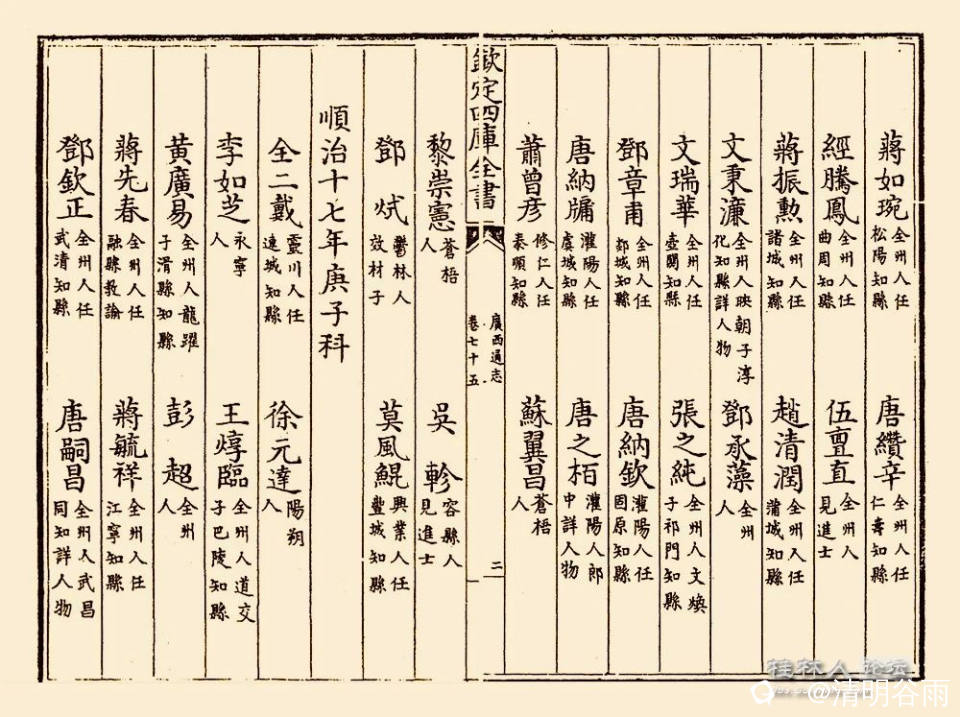 蔣如琬 全州人任松陽知縣 唐纘辛 全州人任仁壽知縣
經騰鳳 全州人任曲周知縣 伍亶直 全州人見進士
蔣振勲 全州人任諸城知縣 趙清潤 全州人任蒲城知縣
文秉濂 全州人映朝子淳化知縣詳人物 鄧承藻 全州人
文瑞華 全州人任壺關知縣 張之純 全州人文煥子祁門知縣
鄧章甫 全州人任郯城知縣 唐納欽 灌陽人任固原知縣
唐納牖 灌陽人任虞城知縣 唐之栢 灌陽人郎中詳人物
蕭曾彦 修仁人任泰順知縣 蘇翼昌 蒼梧人
欽定四庫全書 廣西通志 卷七十五 二
黎崇憲 蒼梧人 吳軫 容縣人見進士
鄧烒 鬱林人效材子 莫風鯤 興業人任豐城知縣
順治十七年庚子科
全二戴 靈川人任連城知縣 徐元達 陽朔人
李如芝 永寧人 王焞臨 全州人道交子巴陵知縣
黄廣易 全州人龍躍子滑縣知縣 彭超 全州人
蔣先春 全州人任融縣教諭 蔣毓祥 全州人任江寧知縣
鄧欽正 全州人任武清知縣 唐嗣昌 全州人武昌同知詳人物
桂林人论坛
@清明谷雨